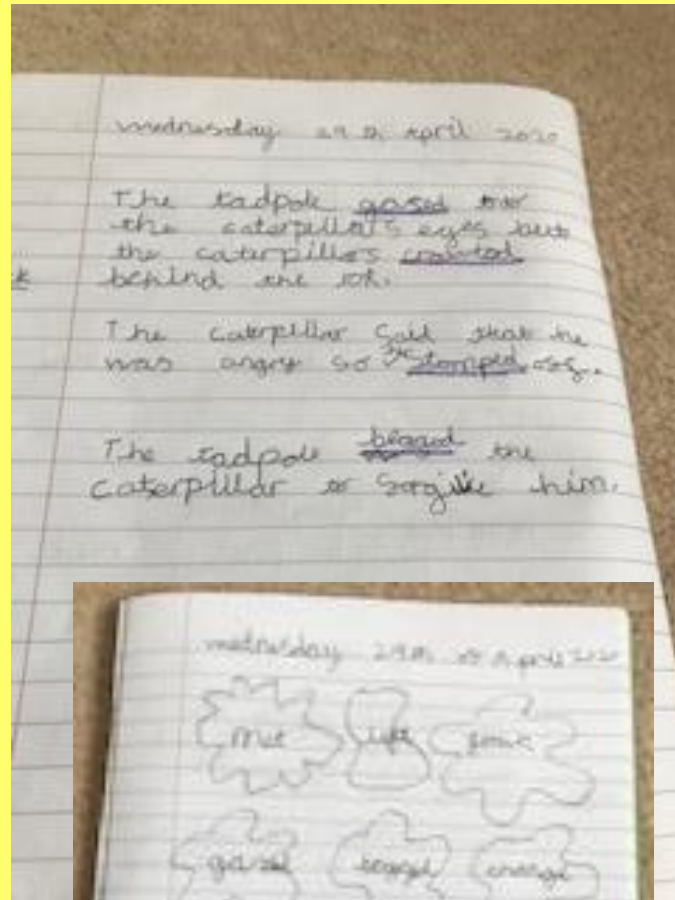 wednesday 29th April 2020
The tadpole gased
the caterpillars eyes but
the caterpillas crawled
behind the
The caterpillar said that he
was angry so stomped
The tadpole beaged the
caterpillar to forgive him.
wednesday 29th April 2020
met
gazed begged change